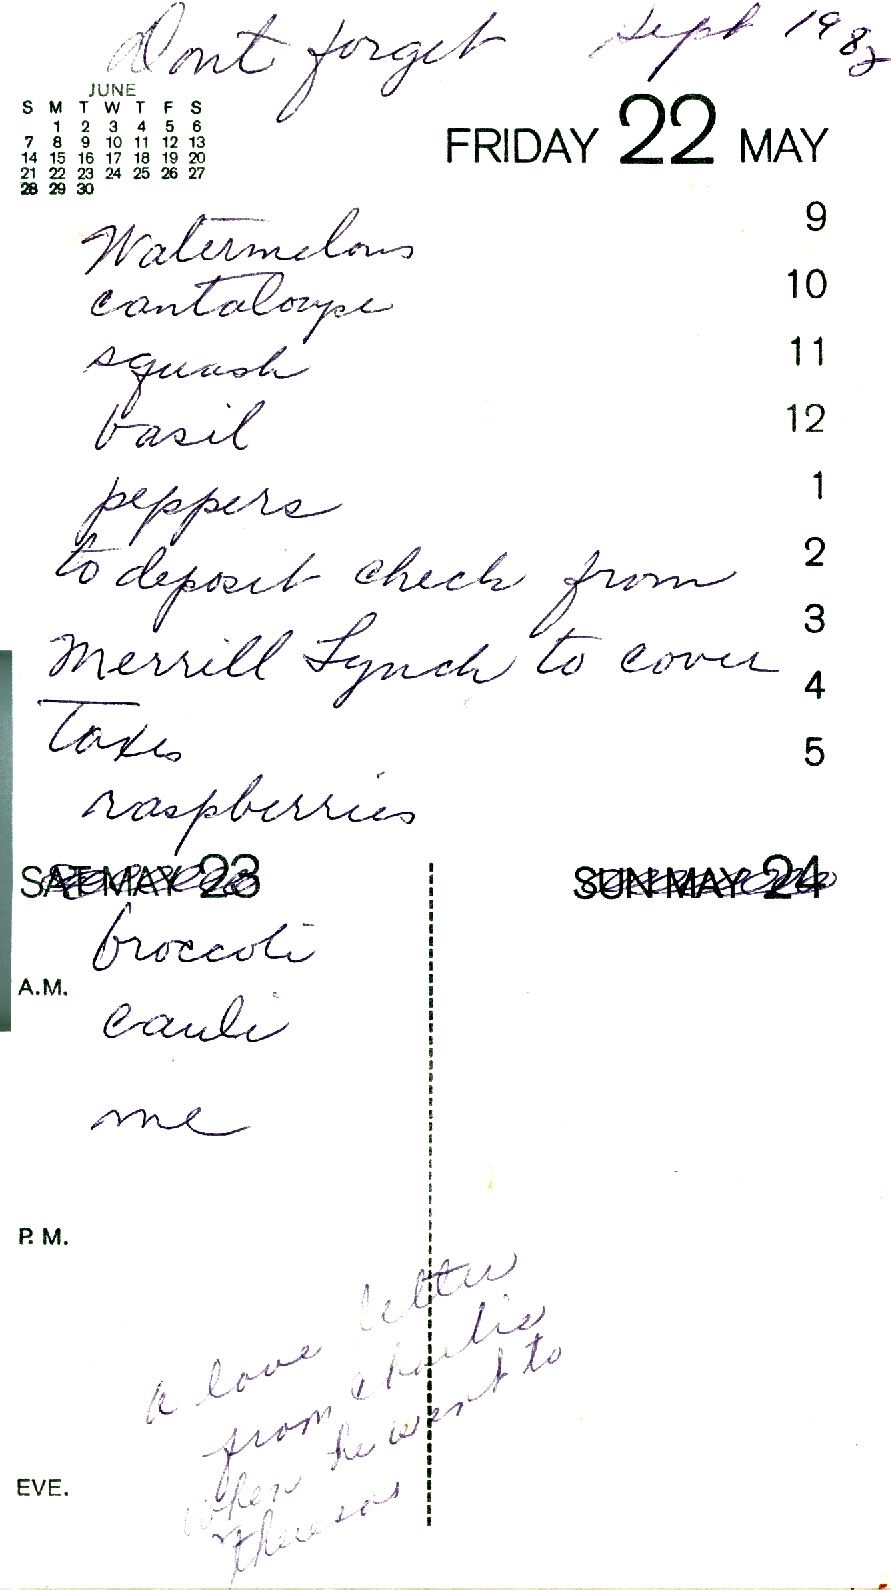 Dont forget Sept 1982
JUNE
S M T W T F S
1 2 3 4 5 6
7 8 9 10 11 12 13
14 15 16 17 18 19 20
21 22 23 24 25 26 27
28 29 30
FRIDAY 22 MAY
9
Watermelons
10
cantaloupe
11
squash
12
basil
1
peppers
2
to deposit check from
3
Merrill Lynch to cover
4
Taxes
5
raspberries
SAT MAY 23
SUN MAY 24
broccoli
A.M.
cauli
me
P.M.
a love letter
from Charlie
when he went to
EVE.